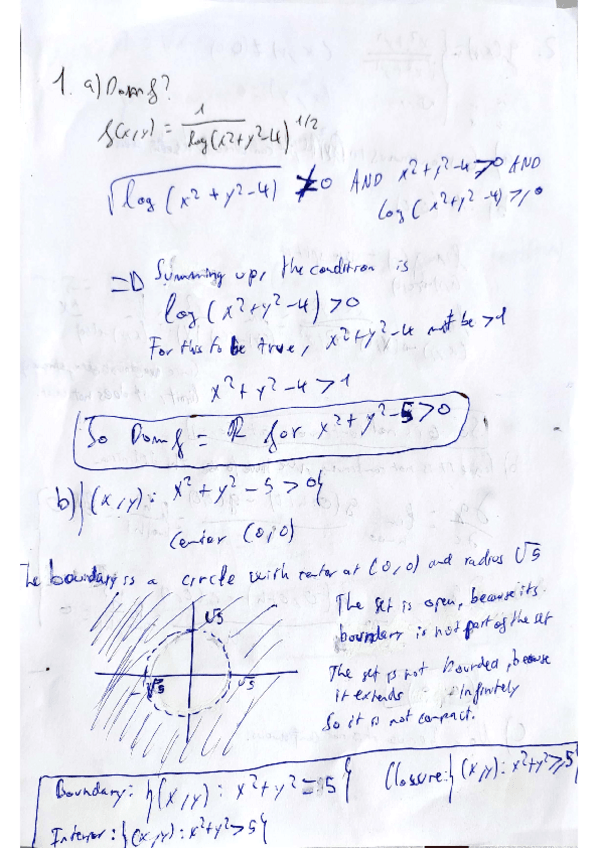 1. a) Dom f?
f(x,y) = 1 / log(x²+y²-4)^1/2
√log(x²+y²-4) ≠0 AND x²+y²-4>0 AND
log(x²+y²-4)≥0
=D Summing up, the condition is
log(x²+y²-4)>0
For this to be true, x²+y²-4 must be >1
x²+y²-4>1
So Dom f = R for x²+y²-5>0
b) {(x,y): x²+y²-5>0}
Center (0,0)
The boundary is a circle with center at (0,0) and radius √5
√5
The set is open, because its
boundary is not part of the set
-√5 √5
The set is not bounded, because
it extends infinitely
So it is not compact.
Boundary: {(x,y): x²+y²=5} Closure: {(x,y): x²+y²≥5}
Interior: {(x,y): x²+y²>5}